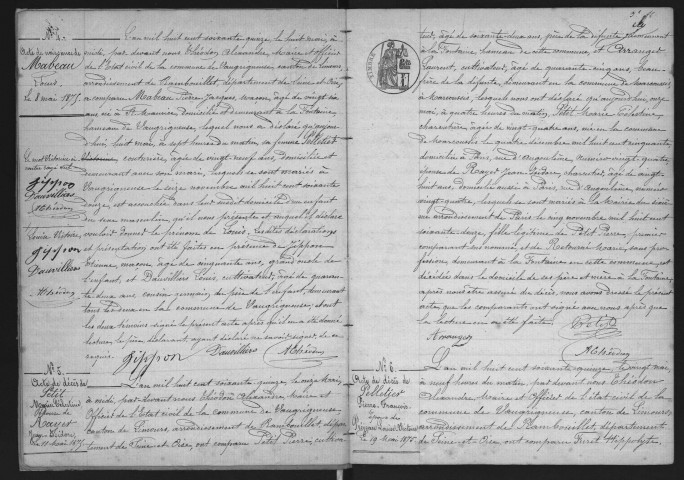 N° 4.
Acte de naissance de
Mabeau
Louis
le 8 mai 1875.
L'an mil huit cent soixante quinze, le huit mai, à
midi, par devant nous Théodore Alexandre Maire et officier
de l'état civil de la commune de Vaugrigneuse, canton de Limours
arrondissement de Rambouillet, département de Seine et Oise,
a comparu Mabeau Pierre Jacques, maçon, âgé de vingt
ans né à St Maurice, domicilié et demeurant à la Fontaine,
hameau de Vaugrigneuse, lequel nous a déclaré qu'aujour
d'hui, huit mai, à sept heures du matin, sa femme Pelletier
couturière, âgée de vingt neuf ans, domiciliée et
demeurant avec son mari, lequel se sont mariés à
Vaugrigneuse le seize novembre mil huit cent soixante
onze, est accouchée dans leur dit domicile d'un enfant
du sexe masculin, qu'il nous présente et auquel il déclare
vouloir donner le prénom de Louis. Lesdites déclarations
et présentation ont été faites en présence de Gippon
Etienne, maçon, âgé de cinquante ans, grand oncle de
l'enfant, et Dauvilliers Louis, cultivateur, âgé de quaran-
te deux ans cousin germain, du père de l'enfant, demeurant
tous les deux en la commune de Vaugrigneuse; et ont
les deux témoins signé le présent acte après qu'il en a été donné
lecture, le père déclarant, ayant déclaré ne savoir signer, de ce
requis.
Gippon Dauvilliers AThéodore
Louise Victoire,
Gippon
Dauvilliers
AThéodore
N° 5.
Acte de décès de
Petit
Marie Célestine
femme de
Royer
le 11 mai 1875
L'an mil huit cent soixante quinze, le onze Mai,
à midi, par devant nous Théodore Alexandre Maire et
Officier de l'Etat civil de la commune de Vaugrigneuse,
canton de Limours arrondissement de Rambouillet, dépar-
tement de Seine et Oise, ont comparu Petit Pierre, cultiva-
teur, âgé de soixante deux ans, père de la défunte, demeurant
à la Fontaine hameau de cette commune, et Arranger
Laurent, cultivateur, âgé de quarante cinq ans,
père de la défunte, demeurant en la commune de Marcoussis
à Marcoussis, lesquels nous ont déclaré qu'aujourd'hui, onze
mai, à quatre heures du matin, Petit Marie Célestine,
âgée de vingt quatre ans, née en la commune
de Marcoussis le quatre décembre mil huit cent cinquante
domiciliée à Paris, rue Angoulême, numéro vingt quatre,
épouse de Royer Jean Isidore, charretier, âgé de vingt
huit ans, domicilié aussi à Paris, rue Angoulême, numéro
vingt quatre, lesquels se sont mariés à la Mairie du
arrondissement de Paris le cinq novembre mil huit cent
soixante douze, fille légitime de Petit Pierre, premier
comparant sus nommé, et de Marie, sans pro-
fession, demeurant à la Fontaine en cette commune, est
décédée dans le domicile de ses père et mère à la Fontaine,
après nous être assuré du décès, nous avons dressé le présent
acte que les comparants ont signé avec nous après que
la lecture en a été faite. Petit
Arranger AThéodore
N° 6.
Acte de décès de
Pelletier
Pierre François
le 19 Mai 1875
L'an mil huit cent soixante quinze, le vingt mai,
à neuf heures du matin, par devant nous Théodore
Alexandre Maire et Officier de l'Etat civil de la
commune de Vaugrigneuse, canton de Limours
arrondissement de Rambouillet, département
de Seine et Oise ont comparu Hippolyte,